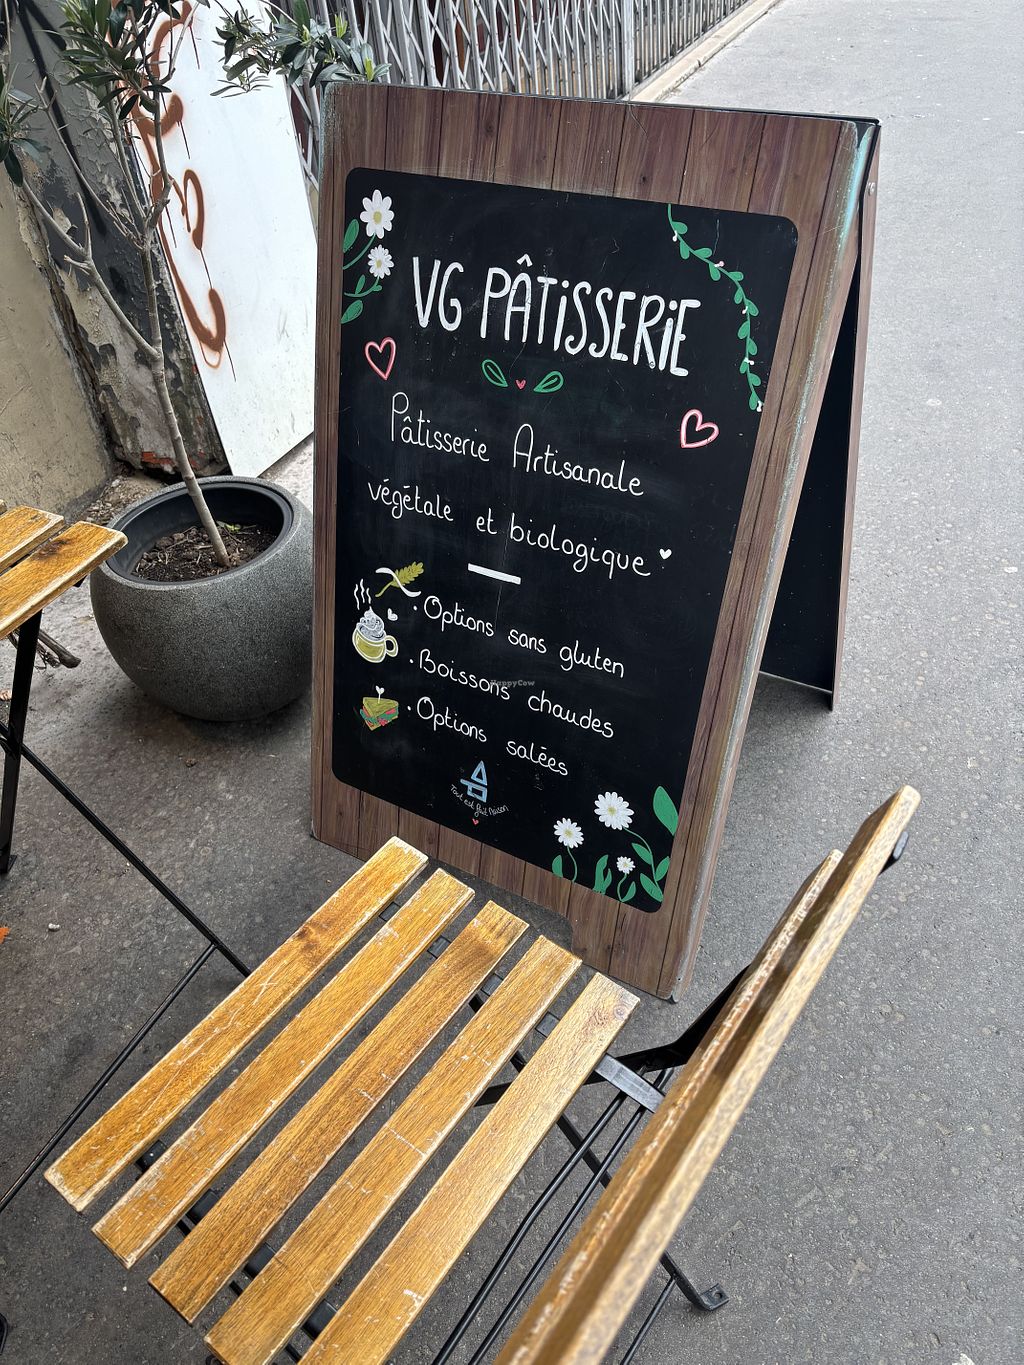 VG PÂTiSSERiE
Pâtisserie Artisanale
végétale et biologique
· Options sans gluten
· Boissons chaudes
· Options salées
Tout est fait Maison
HappyCow